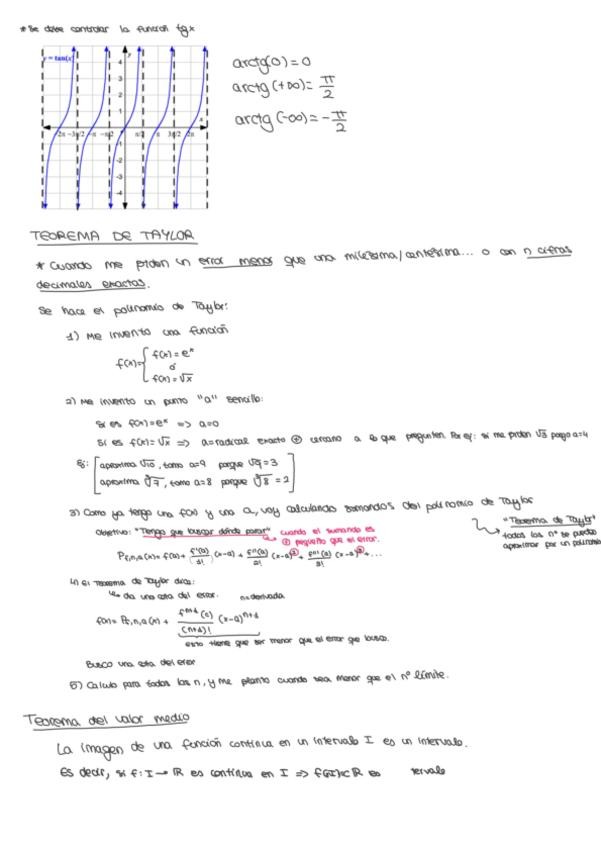 * Se debe controlar la función tgx
y = tan(x)
arctg(0) = 0
arctg(+∞) = π/2
arctg(-∞) = -π/2
TEOREMA DE TAYLOR
* Cuando me piden un error menor que una milésima/centésima... o con n cifras
decimales exactas.
Se hace el polinomio de Taylor:
1) Me invento una función
f(x) = { f(x) = eˣ
ó
f(x) = √x
2) Me invento un punto "a" sencillo:
Si es f(x) = eˣ => a=0
Si es f(x) = √x => a = radical exacto ⊕ cercano a lo que pregunten. Por ej: si me piden √3 pongo a=4
Ej: [ aproxima √10, tomo a=9 porque √9 = 3
aproxima ∛7, tomo a=8 porque ∛8 = 2 ]
3) Como ya tengo una f(x) y una a, voy calculando sumandos del polinomio de Taylor
Objetivo: "Tengo que buscar dónde parar" cuando el sumando es
⊕ pequeño que el error.
"Teorema de Taylor"
todos los nº se pueden
aproximar por un polinomio
P f,n,a (x) = f(a) + f'(a)/1! (x-a) + f''(a)/2! (x-a)² + f'''(a)/3! (x-a)³ + ...
4) El Teorema de Taylor dice:
↳ da una cota del error. n=derivada
f(x) = P f,n,a (x) + fⁿ⁺¹(c)/(n+1)! (x-a)ⁿ⁺¹
esto tiene que ser menor que el error que busco.
Busco una cota del error
5) Calculo para todos los n, y me planto cuando sea menor que el nº límite.
Teorema del valor medio
La imagen de una función continua en un intervalo I es un intervalo.
Es decir, si f: I → ℝ es continua en I => f(I) ⊂ ℝ es tervalo